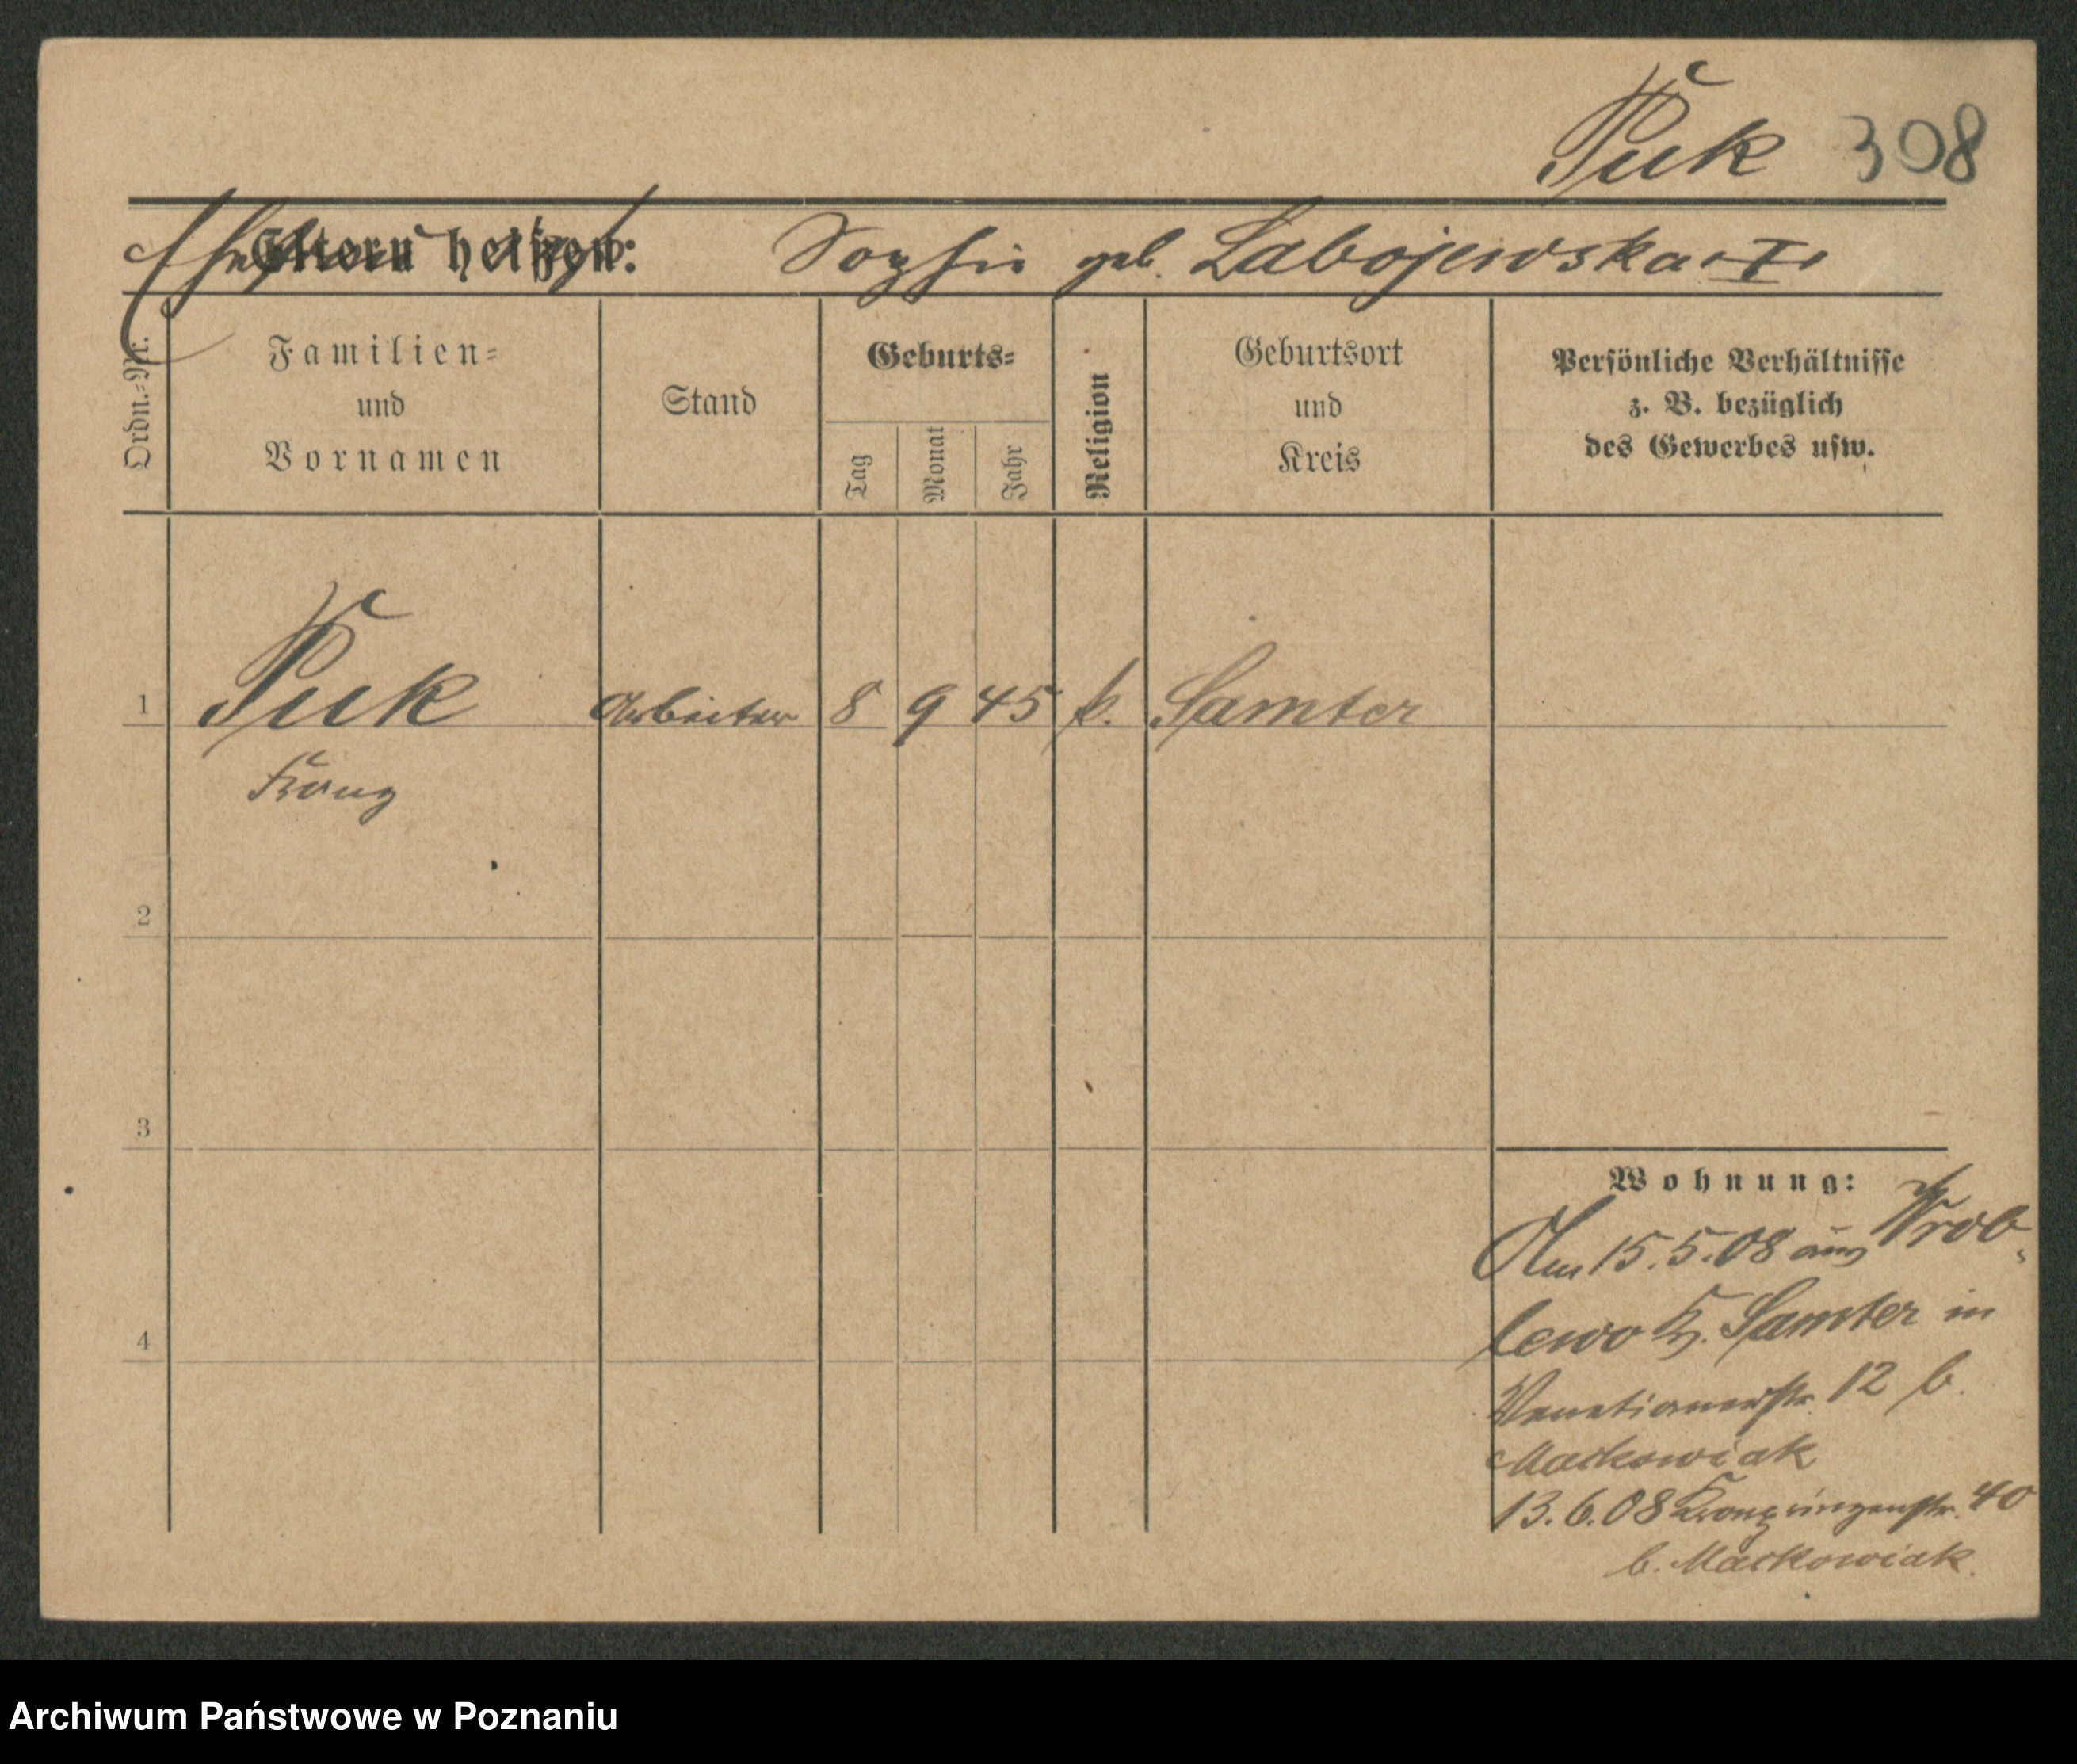 Puk 308
Eltern heißen: Sophie geb. Labojewska I
Ordn.-Nr.
Familien-
und
Vornamen
Stand
Geburts-
Tag
Monat
Jahr
Religion
Geburtsort
und
Kreis
Persönliche Verhältnisse
z. B. bezüglich
des Gewerbes usw.
1 Puk Arbeiter 8 9 45 k. Samter
Franz
2
3
4
Wohnung:
Am 15.5.08 aus Wrob-
lewo Kr. Samter in
Venetianerstr. 12 b.
Markowiak
13.6.08 Kronprinzenstr. 40
b. Markowiak.
Archiwum Państwowe w Poznaniu